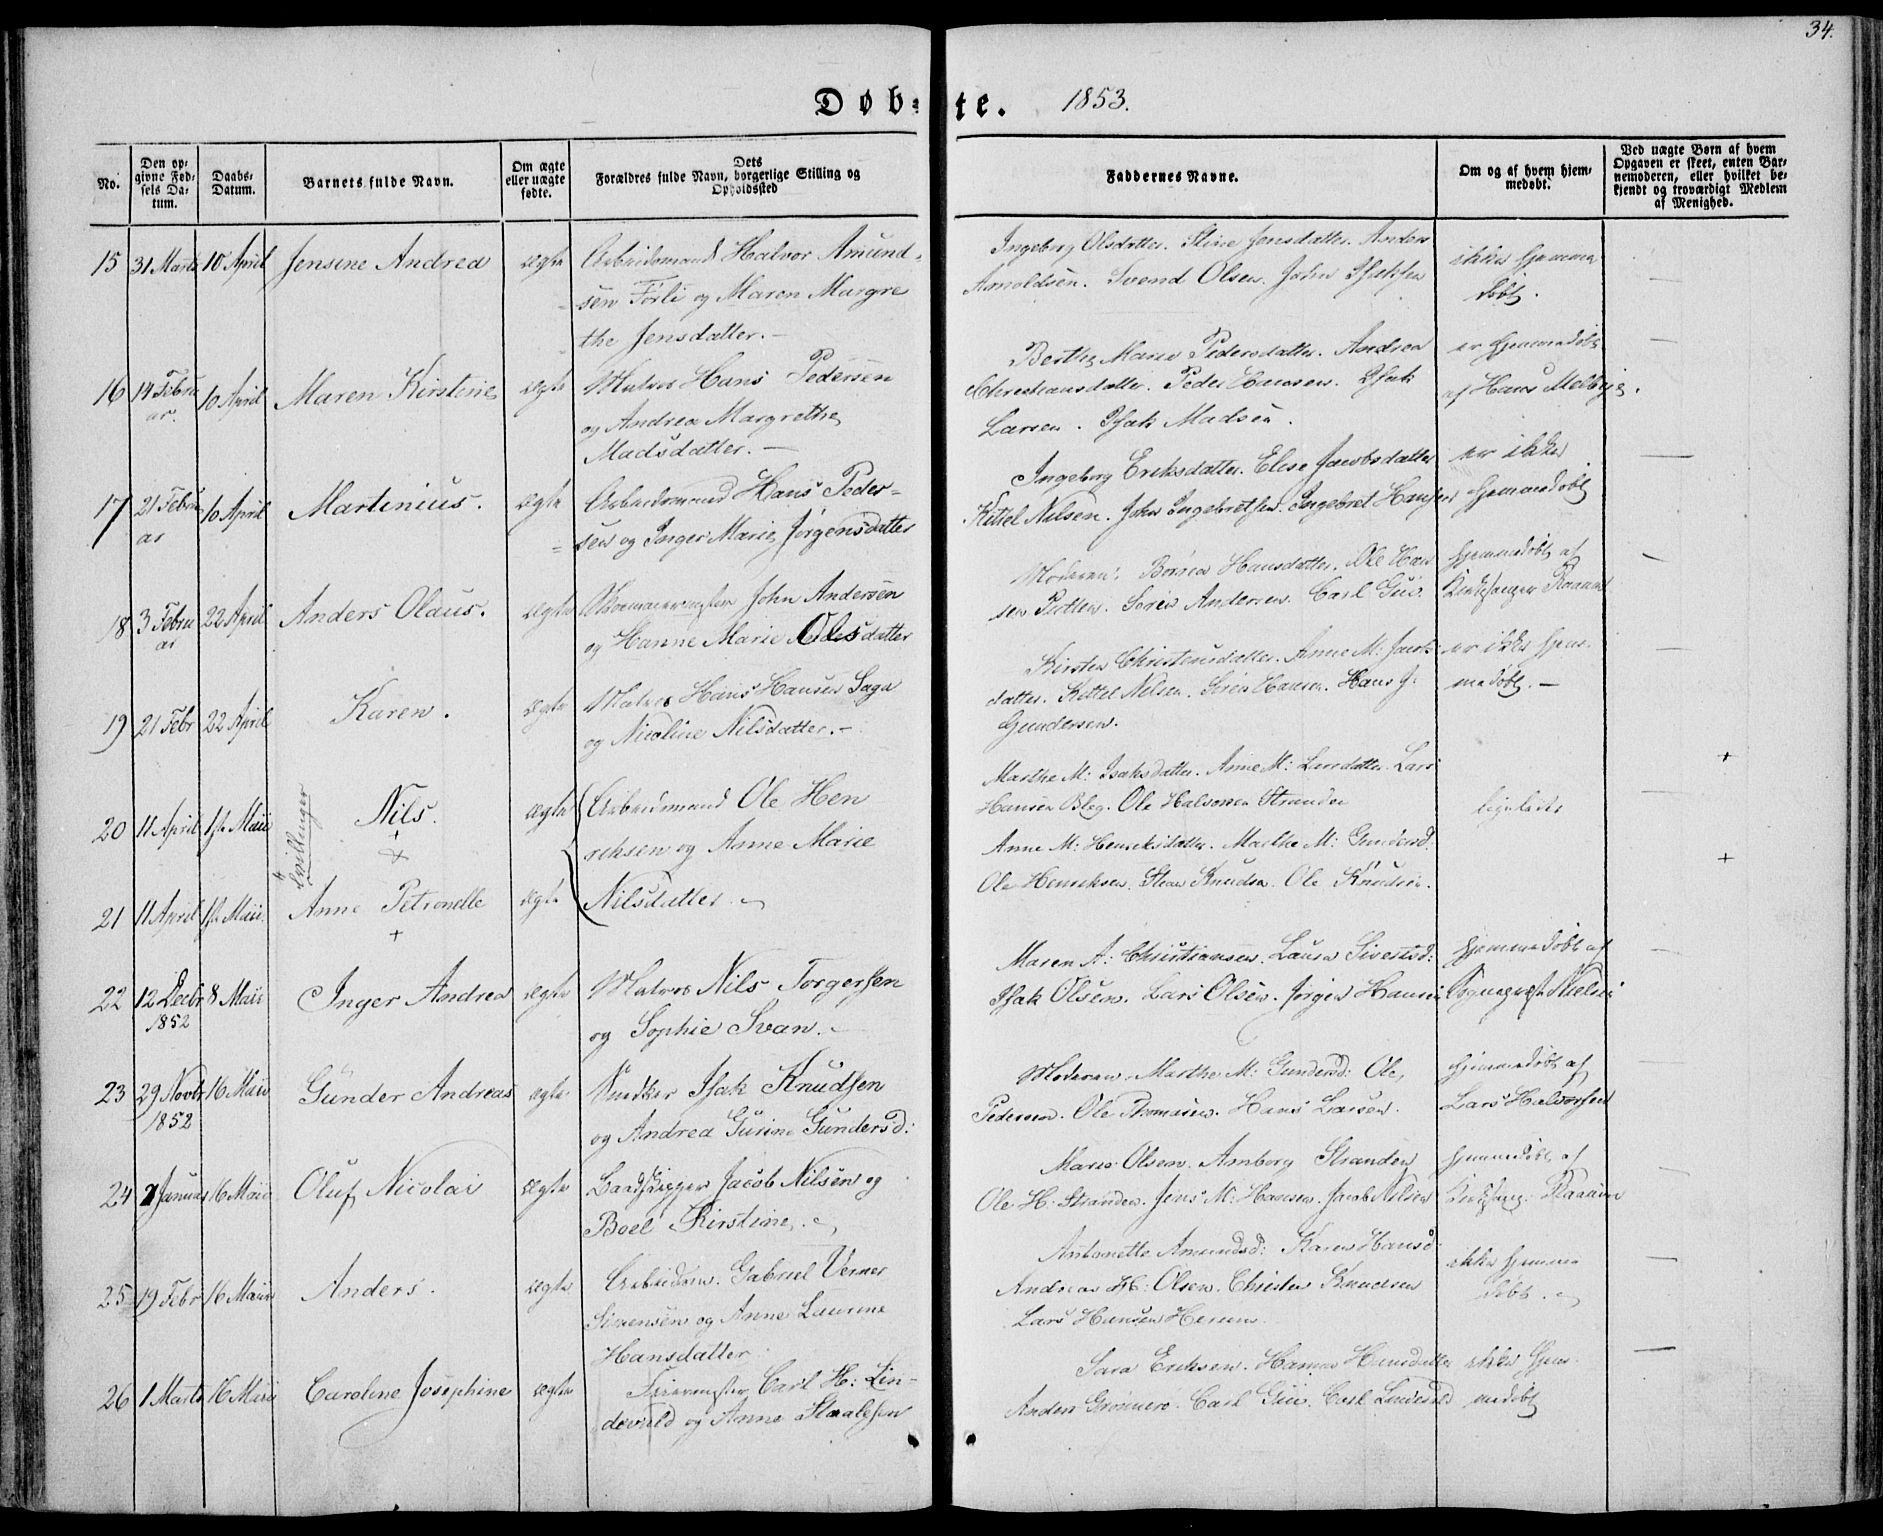 34.
Døb-te. 1853.
No.
Den op-
givne Fød-
sels Da-
tum.
Daabs-
Datum.
Barnets fulde Navn.
Om ægte
eller uægte
fødte.
Dets
Forældres fulde Navn, borgerlige Stilling og
Opholdssted
Faddernes Navne.
Om og af hvem hjem-
medøbt.
Ved uægte Børn af hvem
Opgaven er skeet, enten Bar-
nemoderen, eller hvilket be-
kjendt og troværdigt Medlem
af Menighed.
15 31 Marts 10 April Jensine Andrea ægte Arbeidsmand Halvor Amund-
sen Førli og Maren Margre
the Jensdatter. -
Ingeborg Olsdatter. Stine Jensdatter. Anders
Arnoldsen. Svend Olsen. John
ikke hjemme
døbt.
16 14 Febru
ar. 10 April Maren Kirstine ægte Matros Hans Pedersen
og Andrea Margrethe
Madsdatter. -
Berthe Marie Pedersdatter. Andrea
Christiansdatter. Peder Hansen. Isak
Larsen. Isak Madsen.
er hjemmedøbt
af Hans Melbye.
17 21 Febru
ar 10 April Martinius. ægte Arbeidsmand Hans Peder-
sen og Inger Marie Jørgensdatter
Ingeborg Eriksdatter. Elise Jacobsdatter
Kittel Nilsen. John Ingebretsen. Ingebret Hansen
er ikke
hjemmedøbt
18 3 Febru
ar 22 April Anders Olaus. ægte John Andersen
og Hanne Marie Olsdatter
Moderen. Hansdatter. Ole Han
sen Søren Andersen. Carl Gus.
hjemmedøbt af
Kirkesanger Raaum
19 21 Febr 22 April Karen. ægte Matros Hans Hansen Saga
og Nicoline Nilsdatter. -
Kirsten Christensdatter. Anne M: Jacobs
datter. Kittel Nilsen. Søren Hansen. Hans J.
Gundersen.
er ikke hjem-
medøbt. -
20 11 April 1ste Maii Nils. ægte Arbeidsmand Ole Hen
riksen og Anne Marie
Tvillinger
Marthe M: Isaksdatter. Anne M: Larsdatter. Lars
Hansen Bleg. Ole Halvorsen Stranden
ligeledes
+
21 11 April 1ste Maii. Anne Petronelle ægte Nilsdatter.
+
Anne M: Henriksdatter. Marthe M: Gundersd.
Ole Henriksen. Knudsen. Ole Knudsen.
+
22 12 Decbr
1852 8 Maii Inger Andrea ægte Matros Nils Torgersen
og Sophie Svan.
Maren A: Christiansen. Laura Sivertsd:
Isak Olsen. Lars Olsen. Jørgen Hansen
hjemmedøbt af
Sognepræst Nielsen
23 29 Novbr
1852 16 Maii Gunder Andreas ægte Snedker Isak Knudsen
og Andrea Gurine Gundersd:
Moderen. Marthe M: Gundersd: Ole
Pedersen. Ole Thomasen. Hans Larsen.
hjemmedøbt af
Lars Halvorsen
24 2 Januar 16 Maii Oluf Nicolai ægte Baadskipper Jacob Nilsen og
Boel Kirstine.
Maren Olsen. Amborg Stranden
Ole H. Stranden. Jens M: Hansen. Jacob Nilsen
hjemmedøbt af
Kirkesang: Raaum
25 19 Febr 16 Maii Anders. ægte Arbeidsm. Gabriel Verner
Simensen og Anne Laurine
Hansdatter
Antonette Amundsd: Karen Hansd:
Andreas H: Olsen. Christen Knudsen
Lars Hansen Herum
ikke hjemme
døbt.
26 1 Marts 16 Maii Caroline Josephine ægte Carl H: Lin-
devald og Anne Staalesen
Sara Eriksen. Hanna Hansdatter
Anders Grønnerø. Carl Gus. Carl Lindevald
ikke hjem-
medøbt